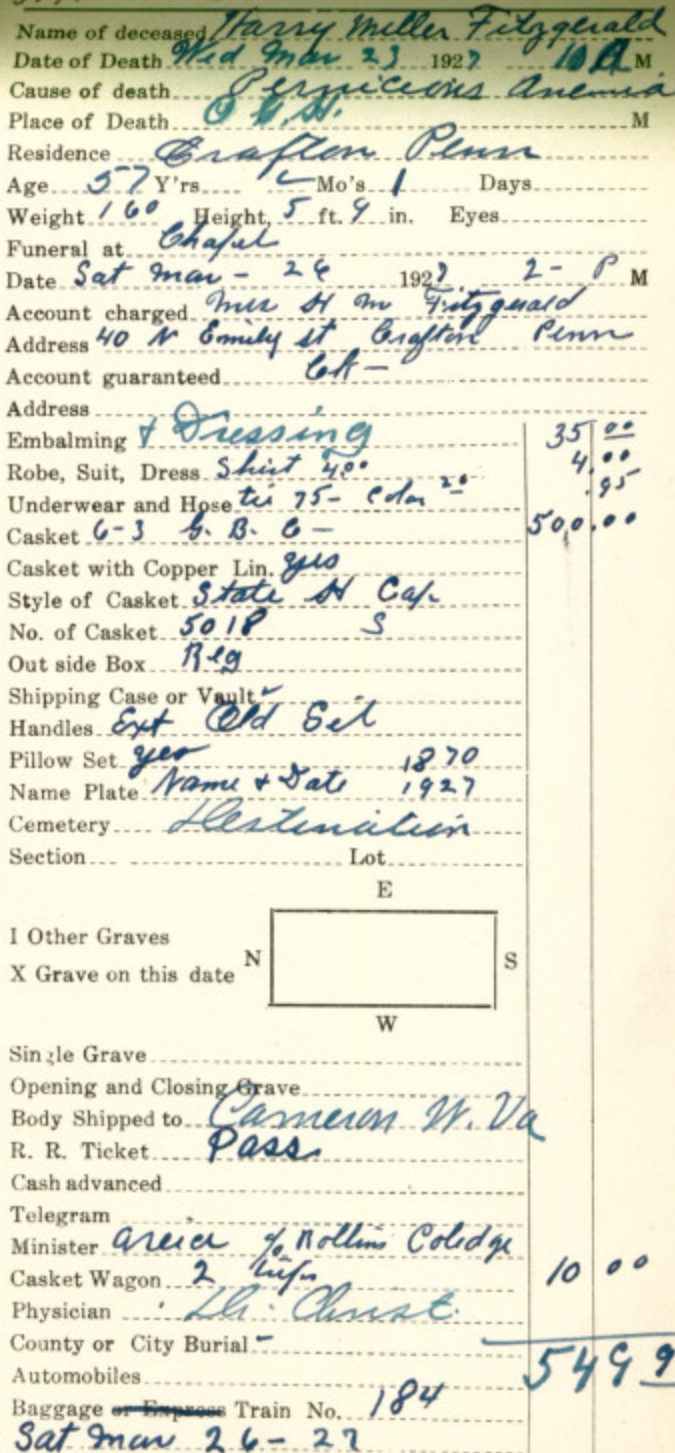 Name of deceased Harry Miller Fitzgerald
Date of Death Wed Mar 23 1927 10 A M
Cause of death Pernicious Anemia
Place of Death O G H. M
Residence Crafton Penn
Age 57 Y'rs Mo's 1 Days
Weight 160 Height, 5 ft. 9 in. Eyes
Funeral at Chapel
Date Sat Mar - 26 1927 2 - P M
Account charged Mrs H M Fitzgerald
Address 40 N Emily st Crafton Penn
Account guaranteed
Address
Embalming & Dressing 35 00
Robe, Suit, Dress Shirt 4.00 4.00
Underwear and Hose tie 75 - Colar 20 .95
Casket 6-3 G. B. C - 500.00
Casket with Copper Lin. yes
Style of Casket State H Cap
No. of Casket 5018 S
Out side Box Reg
Shipping Case or Vault
Handles Ext Old Sil
Pillow Set yes 1870
Name Plate Name & Date 1927
Cemetery Destination
Section Lot
E
I Other Graves
N S
X Grave on this date
W
Single Grave
Opening and Closing Grave
Body Shipped to Cameron W. Va
R. R. Ticket Pass
Cash advanced
Telegram
Minister Rollins Coledge
Casket Wagon 2 trips 10 00
Physician Dr. Christ
County or City Burial -
549 9
Automobiles
Baggage or Express Train No. 184
Sat Mar 26 - 27